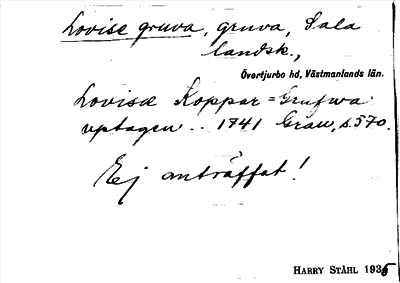 Lovise gruva, gruva, Sala
landsk.,
Övertjurbo hd, Västmanlands län.
Lovisæ Koppar=Grufwa
uptagen .. 1741 Grau, s. 570.
Ej anträffat!
HARRY STÅHL 1935